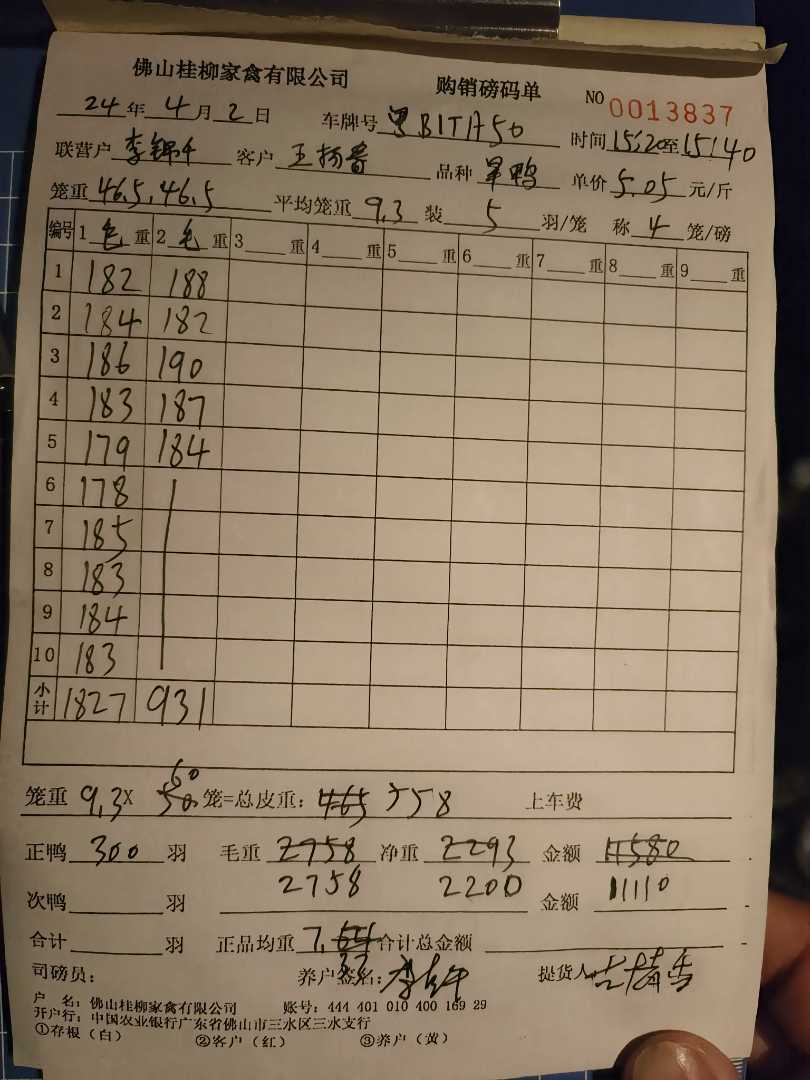 佛山桂柳家禽有限公司 购销磅码单 NO 0013837
24年4月2日 车牌号 粤B1TA50 时间15:20至15:40
联营户 客户 品种 单价5.05元/斤
笼重46.5,46.5 平均笼重9.3 装5羽/笼 称4笼/磅
编号 1毛重 2毛重 3重 4重 5重 6重 7重 8重 9重
1 182 188
2 184 182
3 186 190
4 183 187
5 179 184
6 178
7 185
8 183
9 184
10 183
小计 1827 931
60
笼重9.3X 50笼=总皮重:465 558 上车费
正鸭300羽 毛重2758 净重2293 金额11580
2758 2200 11110
次鸭羽 金额
合计羽 正品均重7.64 合计总金额
33
司磅员: 养户签名: 提货人
户 名:佛山桂柳家禽有限公司 账号:444 401 010 400 169 29
开户行:中国农业银行广东省佛山市三水区三水支行
①存根(白) ②客户(红) ③养户(黄)